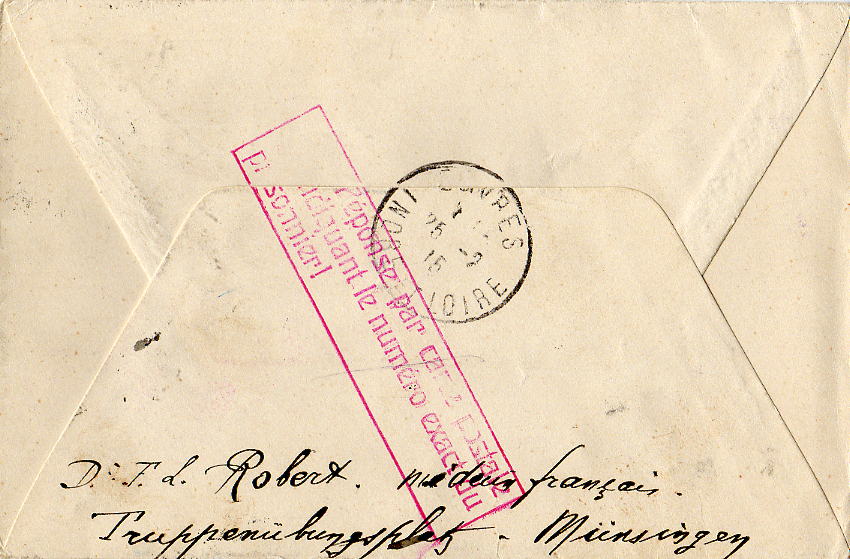 Réponse par carte postale
indiquant le numéro exact du
prisonnier!
25 -2
16
LOIRE
Dr F. L. Robert. médecin français.
Truppenübungsplatz - Münsingen